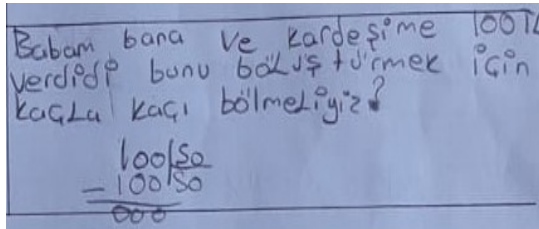 Babam bana ve kardeşime 100TL
verdidi bunu bölüştürmek için
kaçla kaçı bölmeliyiz?
100|50
- 100|50
000